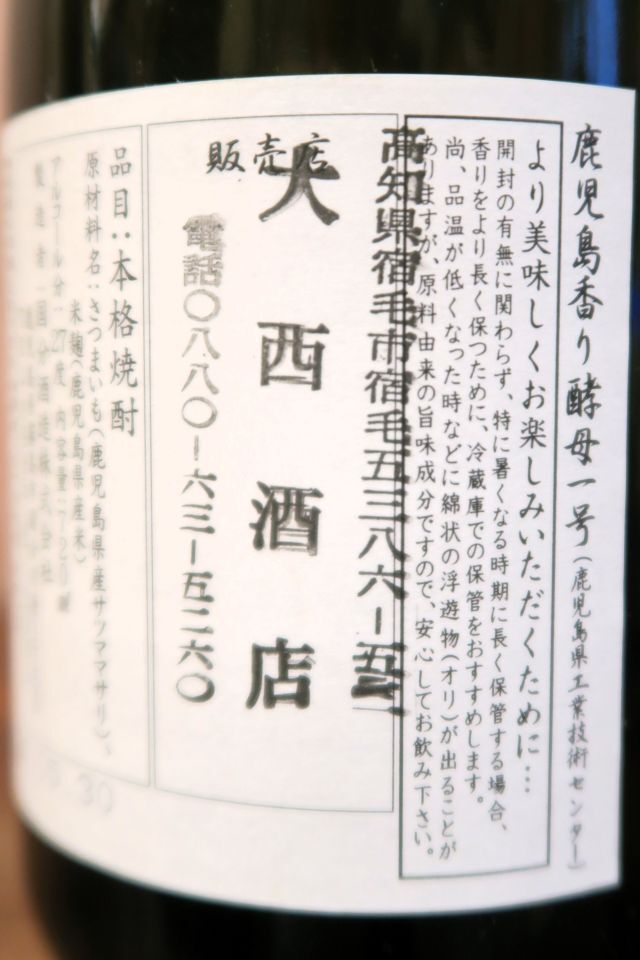 鹿児島香り酵母一号(鹿児島県工業技術センター)
より美味しくお楽しみいただくために…
開封の有無に関わらず、特に暑くなる時期に長く保管する場合、
香りをより長く保つために、冷蔵庫での保管をおすすめします。
尚、品温が低くなった時などに綿状の浮遊物(オリ)が出ることが
ありますが、原料由来の旨味成分ですので、安心してお飲み下さい。
高知県宿毛市宿毛五三八六ー五
販売店
大西酒店
電話〇八八〇ー六三ー五二六〇
品目:本格焼酎
原材料名:さつまいも(鹿児島県産サツママサリ)、
米麹(鹿児島県産米)
アルコール分:27度 内容量:720ml
製造者:国分酒造株式会社
30